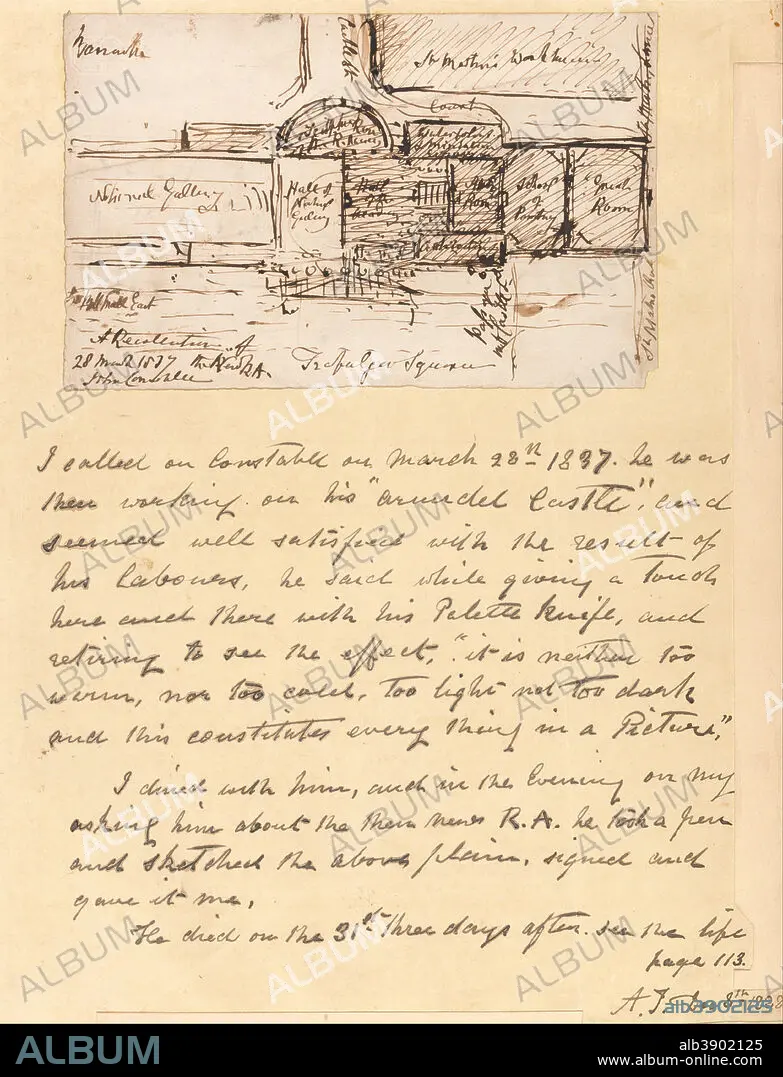 Barracks
Castle St
St Martin's Workhouse
Court
National Gallery
Hall of
National
Gallery
Hall
of the
School
of
Painting
Great
Room
Pall Mall East
A Recollection of
28 March 1837 the R.A.
John Constable
Trafalgar Square
I called on Constable on March 28th 1837. he was
then working on his "Arundel Castle", and
seemed well satisfied with the result of
his labours, he said while giving a touch
here and there with his Palette knife, and
retiring to see the effect, "it is neither too
warm, nor too cold, too light not too dark
and this constitutes every thing in a Picture",
I dined with him, and in the Evening on my
asking him about the then new R.A. he took a pen
and sketched the above plain, signed and
gave it me,
He died on the 31st three days after. see the life
page 113.
alb3902125
ALBUM
alb3902125
www.album-online.com